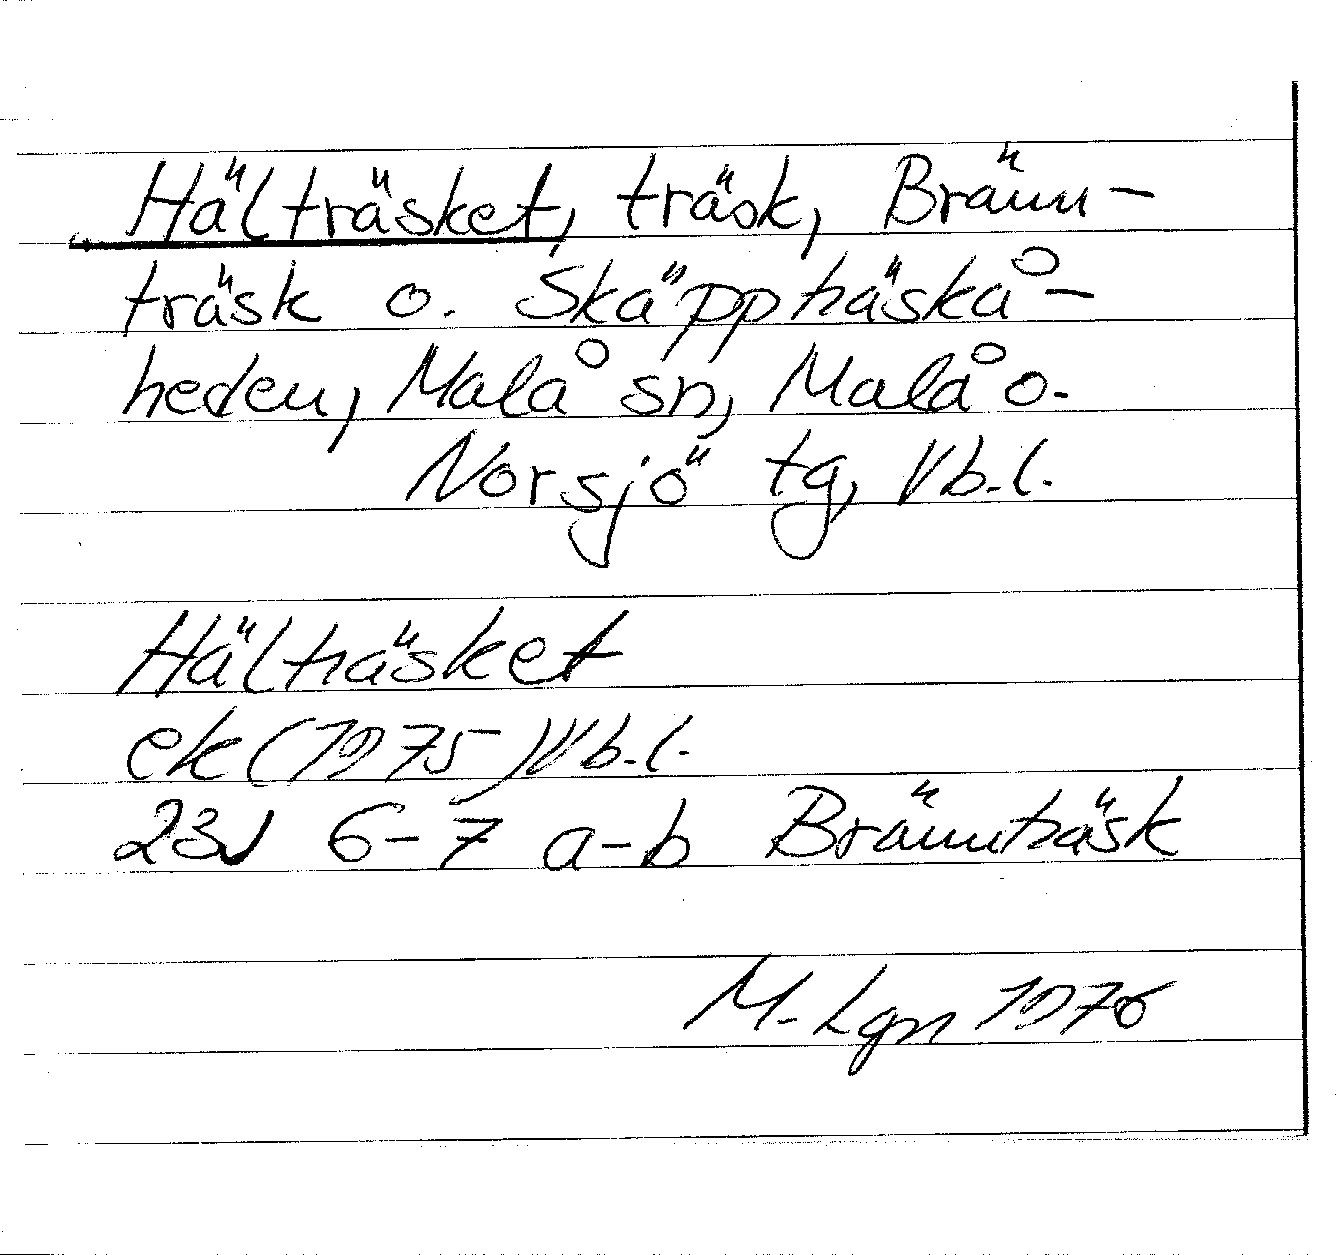 Hälträsket, träsk, Bränn-
träsk o. Skäppträskå-
heden, Malå sn, Malå o.
Norsjö tg, Vb.l.
Hälträsket
ek (1975) Vb.l.
23J 6-7 a-b Brännträsk
M-Lgn 1976